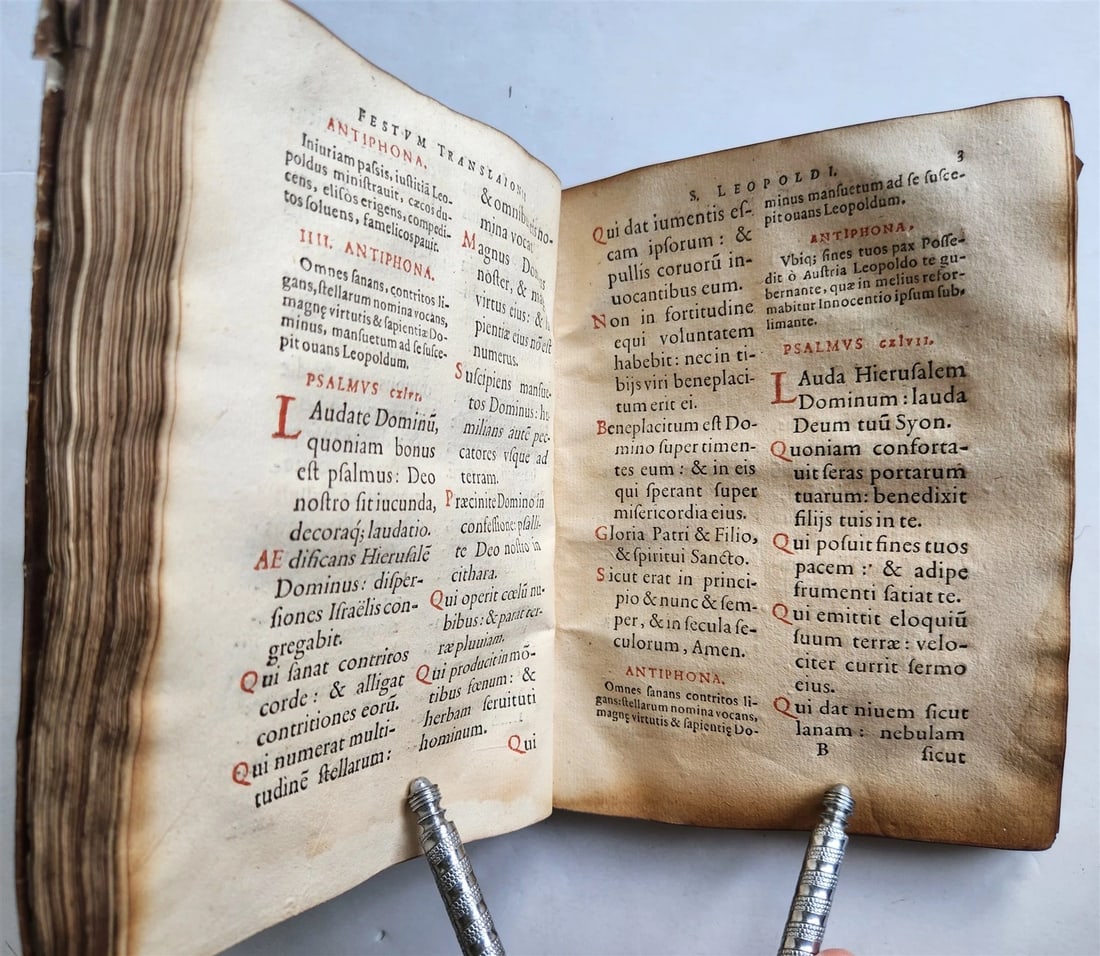 FESTVM TRANSLAION:
ANTIPHONA.
Iniuriam paſsis, iuſtitiā Leo-
poldus miniſtrauit, cæcos du-
cens, eliſos erigens, compedi-
tos ſoluens, famelicos pauit.
IIII. ANTIPHONA.
Omnes ſanans, contritos li-
gans, ſtellarum nomina vocans,
magnę virtutis & ſapientiæ Do-
minus, manſuetum ad ſe ſuſce-
pit ouans Leopoldum.
PSALMVS cxlvi.
LAudate Dominū,
quoniam bonus
eſt pſalmus: Deo
noſtro ſit iucunda,
decoraq́; laudatio.
AEdificans Hieruſalē
Dominus: diſper-
ſiones Iſraëlis con-
gregabit.
Qui ſanat contritos
corde: & alligat
contritiones eorū.
Qui numerat multi-
tudinē ſtellarum:
& omnibus no-
mina vocat
Magnus Dominus
noſter, & 
virtus eius: & 
pientiæ eius nō eſt
numerus.
Suſcipiens manſue-
tos Dominus: hu-
milians autē pec-
catores vſque ad
terram.
Præcinite Domino in
confeſsione: pſalli-
te Deo noſtro in
cithara.
Qui operit cœlū nu-
bibus: & parat ter-
ræ pluuiam.
Qui producit in mō-
tibus fœnum: &
herbam ſeruituti
hominum.
Qui
S. LEOPOLDI. 3
Qui dat iumentis eſ-
cam ipſorum: &
pullis coruorū in-
uocantibus eum.
Non in fortitudine
equi voluntatem
habebit: nec in ti-
bijs viri beneplaci-
tum erit ei.
Beneplacitum eſt Do-
mino ſuper timen-
tes eum: & in eis
qui ſperant ſuper
miſericordia eius.
Gloria Patri & Filio,
& ſpiritui Sancto.
Sicut erat in princi-
pio & nunc & ſem-
per, & in ſecula ſe-
culorum, Amen.
ANTIPHONA.
Omnes ſanans contritos li-
gans: ſtellarum nomina vocans,
magnę virtutis & ſapientię Do-
minus manſuetum ad ſe ſuſce-
pit ouans Leopoldum.
ANTIPHONA.
Vbiq; fines tuos pax Poſſe-
dit ò Auſtria Leopoldo te gu-
bernante, quæ in melius refor-
mabitur Innocentio ipſum ſub-
limante.
PSALMVS cxlvii.
LAuda Hieruſalem
Dominum: lauda
Deum tuū Syon.
Quoniam conforta-
uit ſeras portarum
tuarum: benedixit
filijs tuis in te.
Qui poſuit fines tuos
pacem: & adipe
frumenti ſatiat te.
Qui emittit eloquiū
ſuum terræ: velo-
citer currit ſermo
eius.
Qui dat niuem ſicut
lanam: nebulam
B ſicut